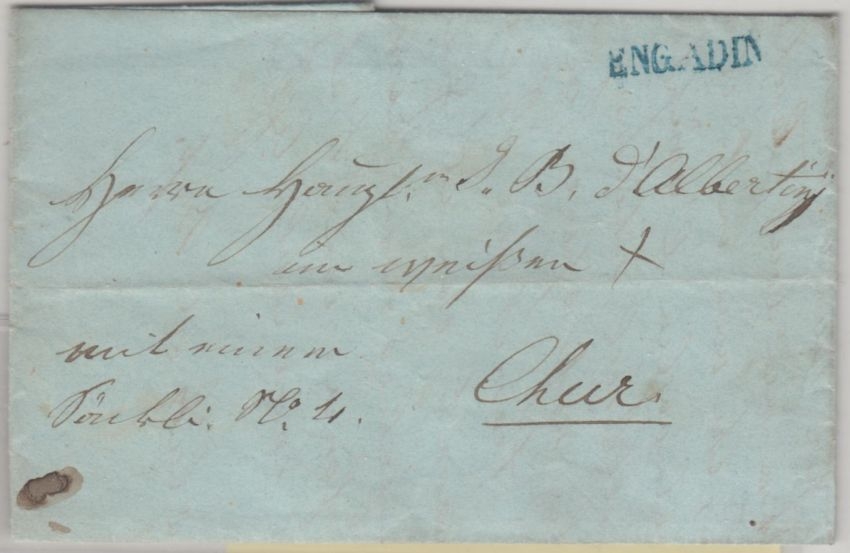 ENGADIN
Herrn Hauptm J. B. d'Albertini
im weißen +
mit einem
Säckli: No. 4.
Chur.